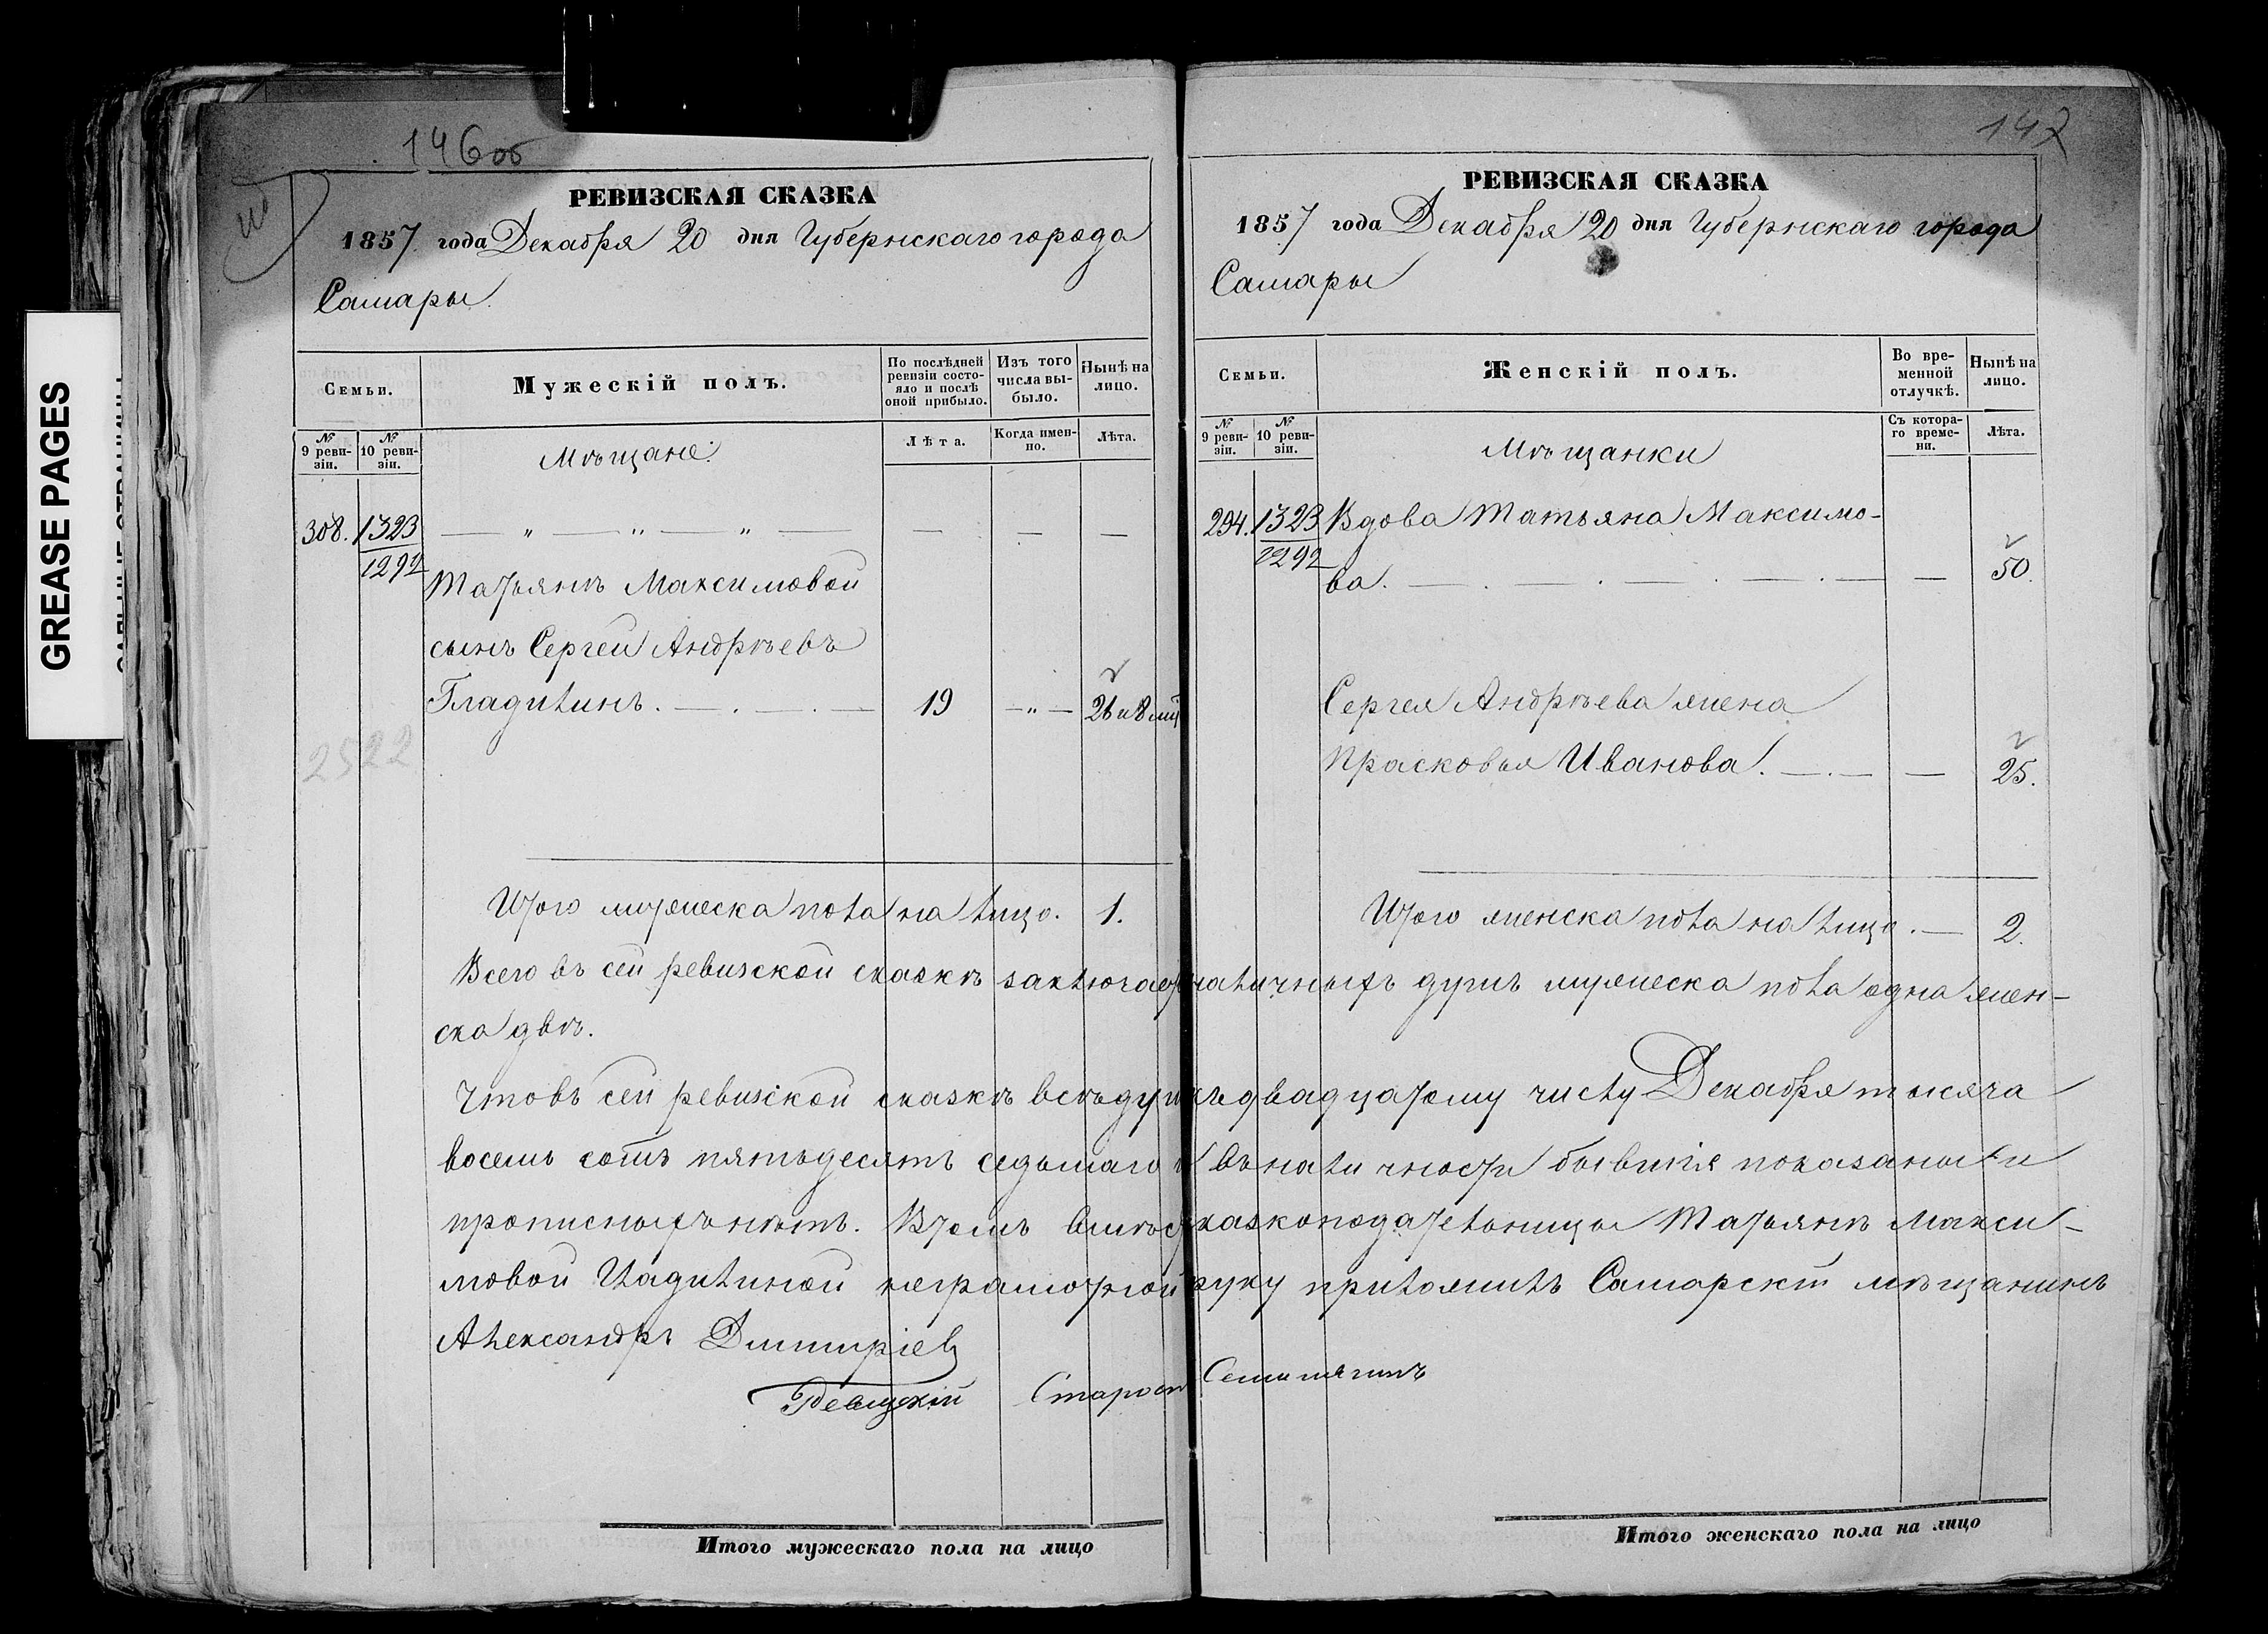 GREASE PAGES
146об
РЕВИЗСКАЯ СКАЗКА
1857 года Декабря 20 дня Губернскаго города
Самары
Семьи.
Мужескій полъ.
По послѣдней ревизіи состояло и послѣ оной прибыло.
Изъ того числа выбыло.
Нынѣ на лицо.
№ 9 ревизіи.
№ 10 ревизіи.
Мѣщане:
Лѣта.
Когда именно.
Лѣта.
308. 1323 — " — " — " — — — —
1292
Татьянѣ Максимовой
сынъ Сергей Андрѣевъ
Гладилинъ. — . — . — 19 — " — 26 и 8 мц
2522
Итого мужеска пола на лицо. 1.
147
РЕВИЗСКАЯ СКАЗКА
1857 года Декабря 20 дня Губернскаго города
Самары
Семьи.
Женскій полъ.
Во временной отлучкѣ.
Нынѣ на лицо.
№ 9 ревизіи.
№ 10 ревизіи.
Мѣщанки
Съ котораго времени.
Лѣта.
294. 1323 Вдова Татьяна Максимо-
1292 ва. — . — . — . — . — — 50.
Сергея Андрѣева жена
Прасковья Иванова. — . — — 25.
Итого женска пола на лицо. — 2.
Всего въ сей ревизской сказкѣ заключает наличныхъ душъ мужеска пола одна жен-
ска двѣ.
Что въ сей ревизской сказкѣ всѣ души къ двадцатому числу Декабря тысяча
восемь сотъ пятьдесятъ седьмаго въ наличности бывшія показаны и
прописныхъ нѣтъ. В томъ вмѣсто сказкоподательницы Татьянѣ Макси-
мовой Гладилиной неграмотной руку приложилъ Самарскій мѣщанинъ
Александръ Дмитріев
Старост
Итого мужескаго пола на лицо
Итого женскаго пола на лицо